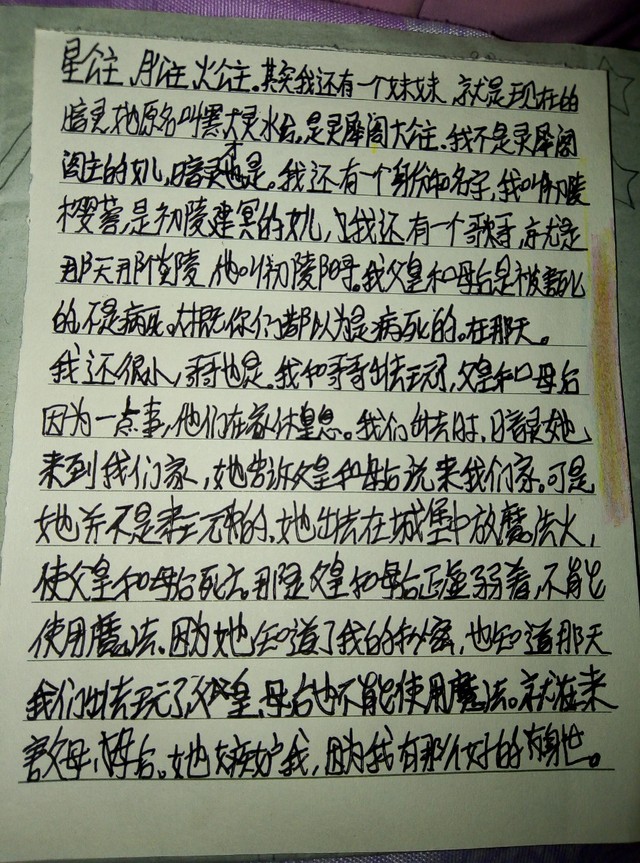 星公主、月公主、火公主。其实我还有一个妹妹，就是现在的
暗灵她原名叫黑灵水公，是灵犀阁大公主。我不是灵犀阁
阁主的女儿，暗灵才也是。我还有一个身份和名字，我叫初陵
樱蓉，是初陵建冥的女儿，我还有一个哥哥，就是
那天那个陵，他叫初陵。我父皇和母后是被害死
的不是病死。你们都以为是病死的。在那天。
我还很小，哥哥也是。我和哥哥出去玩了，父皇和母后
因为一点事，他们在家休息。我们出去时，暗灵她
来到我们家，她告诉父皇和母后说来我们家。可是
她并不是来玩的，她出去在城堡中放魔法火，
使父皇和母后死亡。那父皇和母后正虚弱着，不能
使用魔法。因为她知道了我的秘密，也知道那天
我们出去玩了父皇、母后也不能使用魔法。就在来
害父母、母后。她嫉妒我，因为我有那个好的身世。